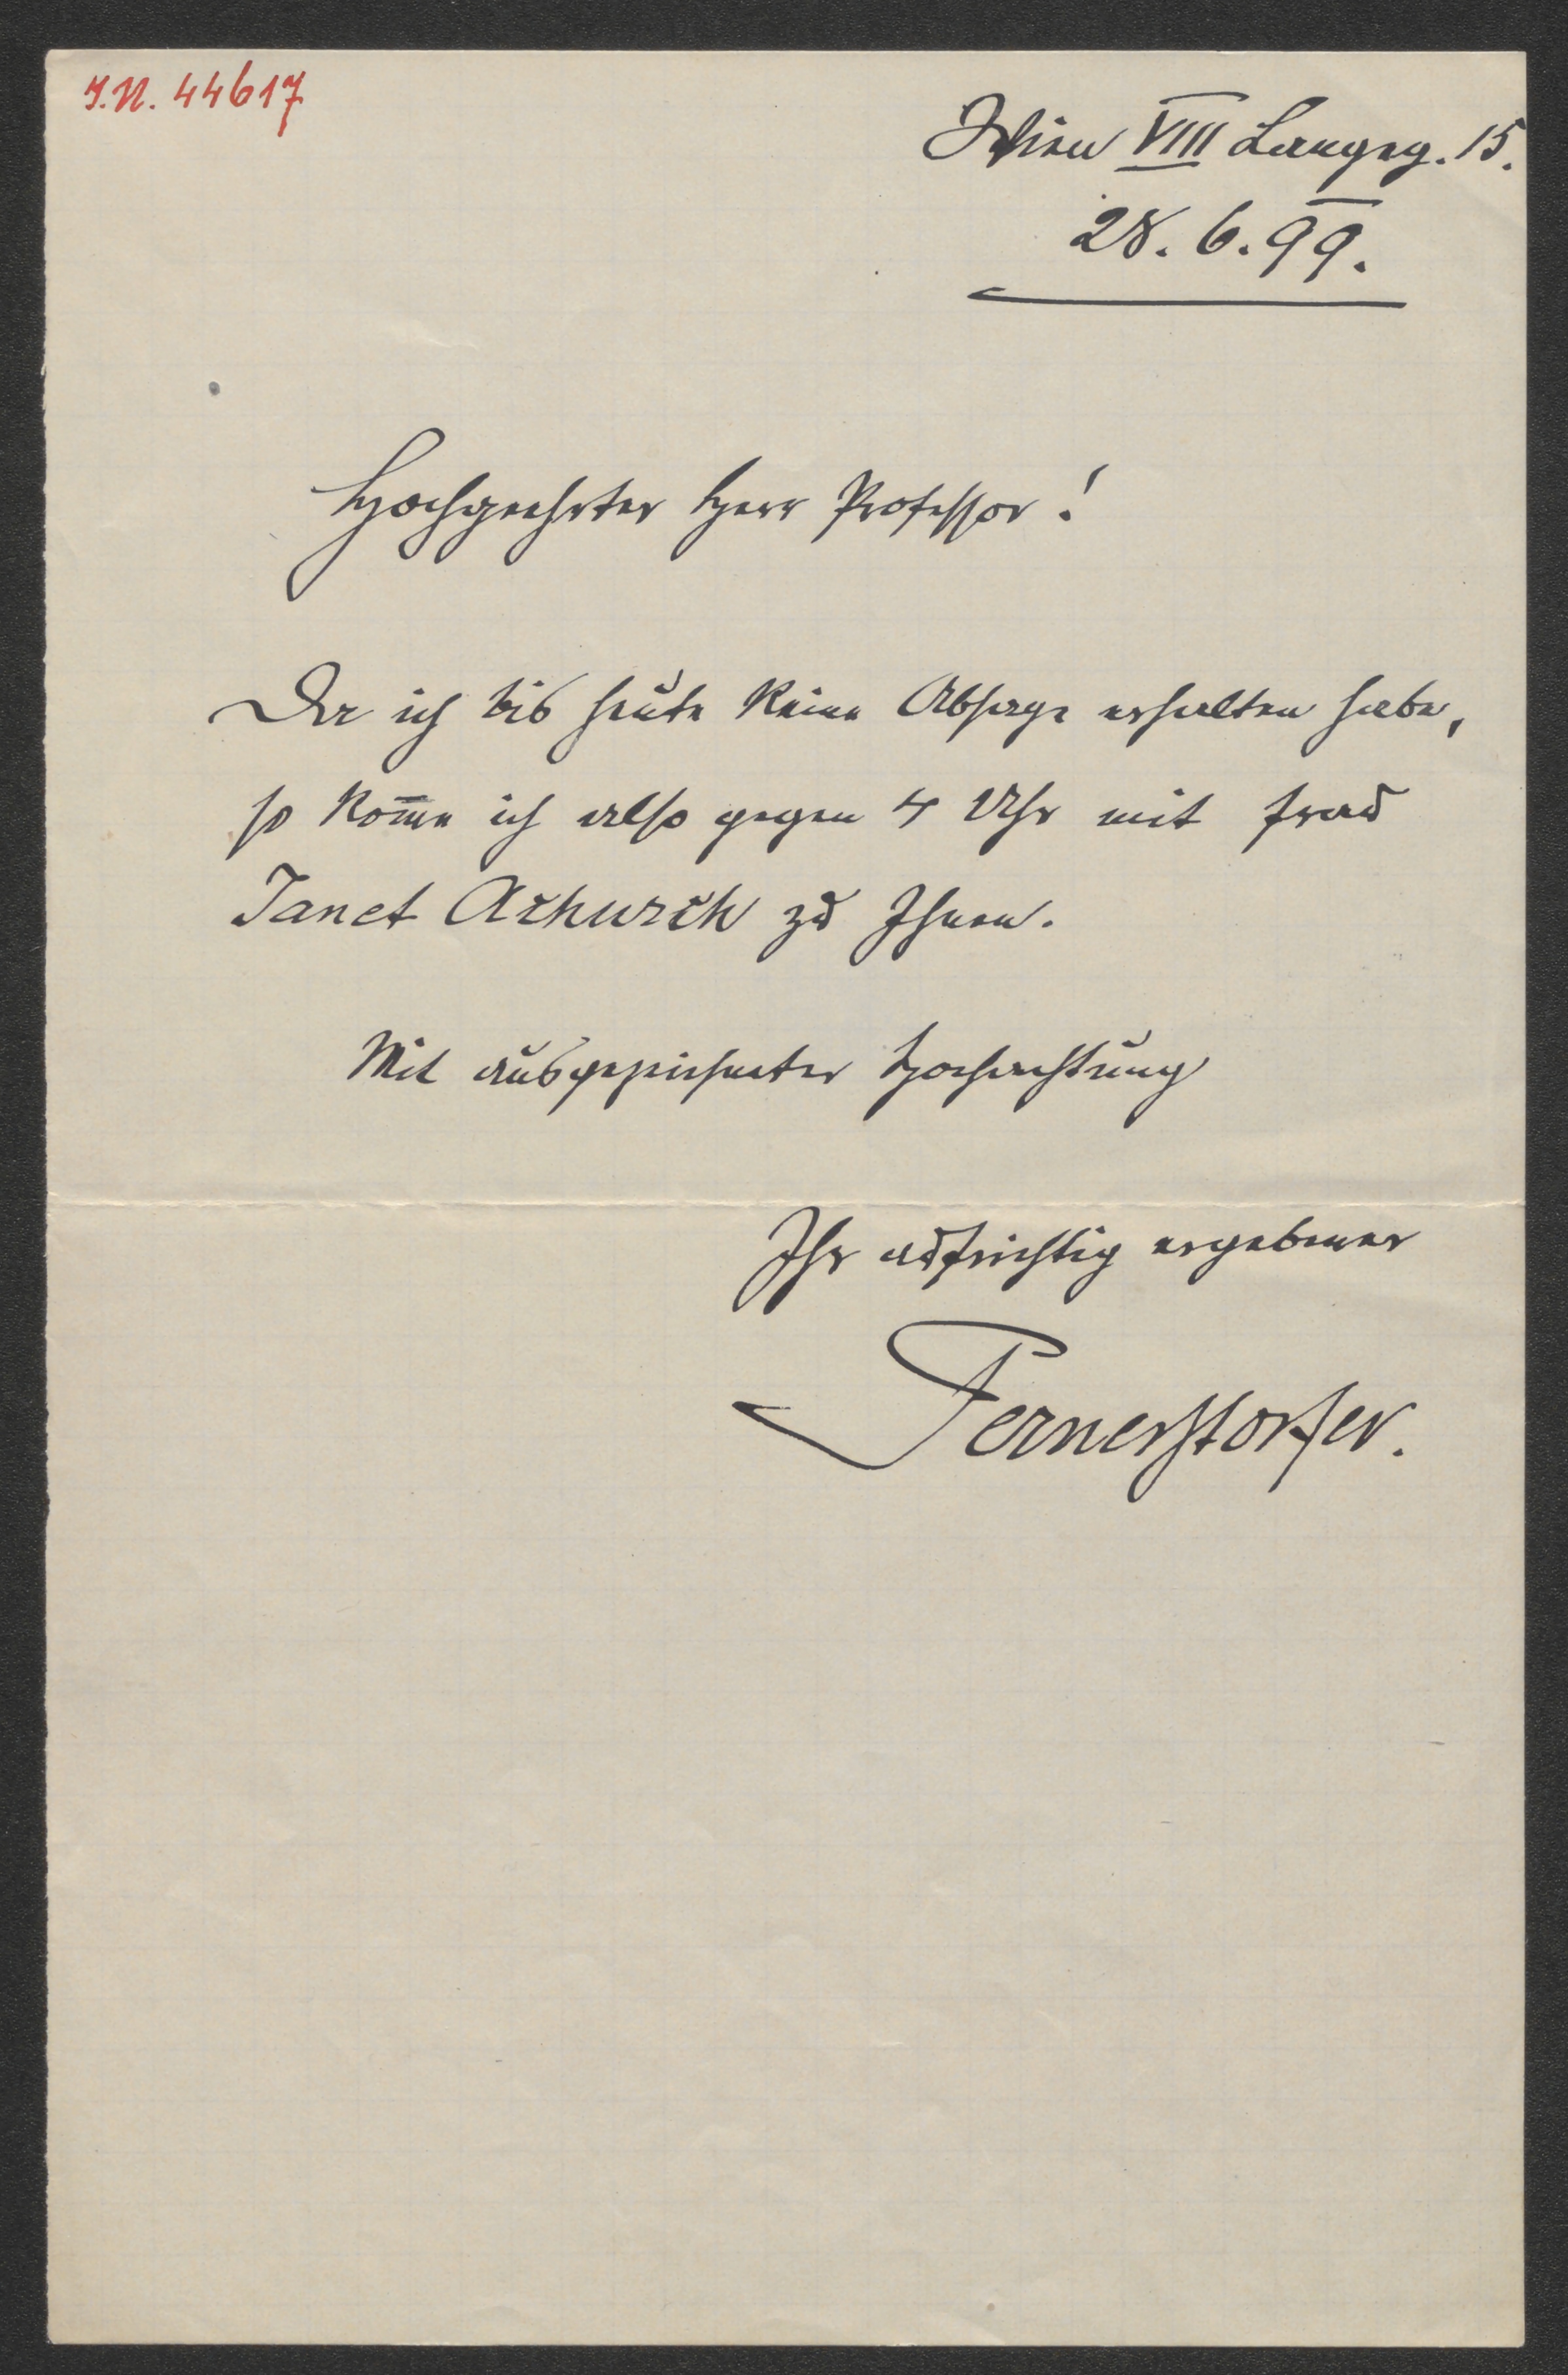 I.N. 44617
Wien VIII Langeg. 15.
28. 6. 99.
Hochgeehrter Herr Professor!
Da ich bis heute keine Absage erhalten habe,
so kom̅e ich also gegen 4 Uhr mit Frau
Janet Achurch zu Ihnen.
Mit ausgezeichneter Hochachtung
Ihr aufrichtig ergebener
Pernerstorfer.